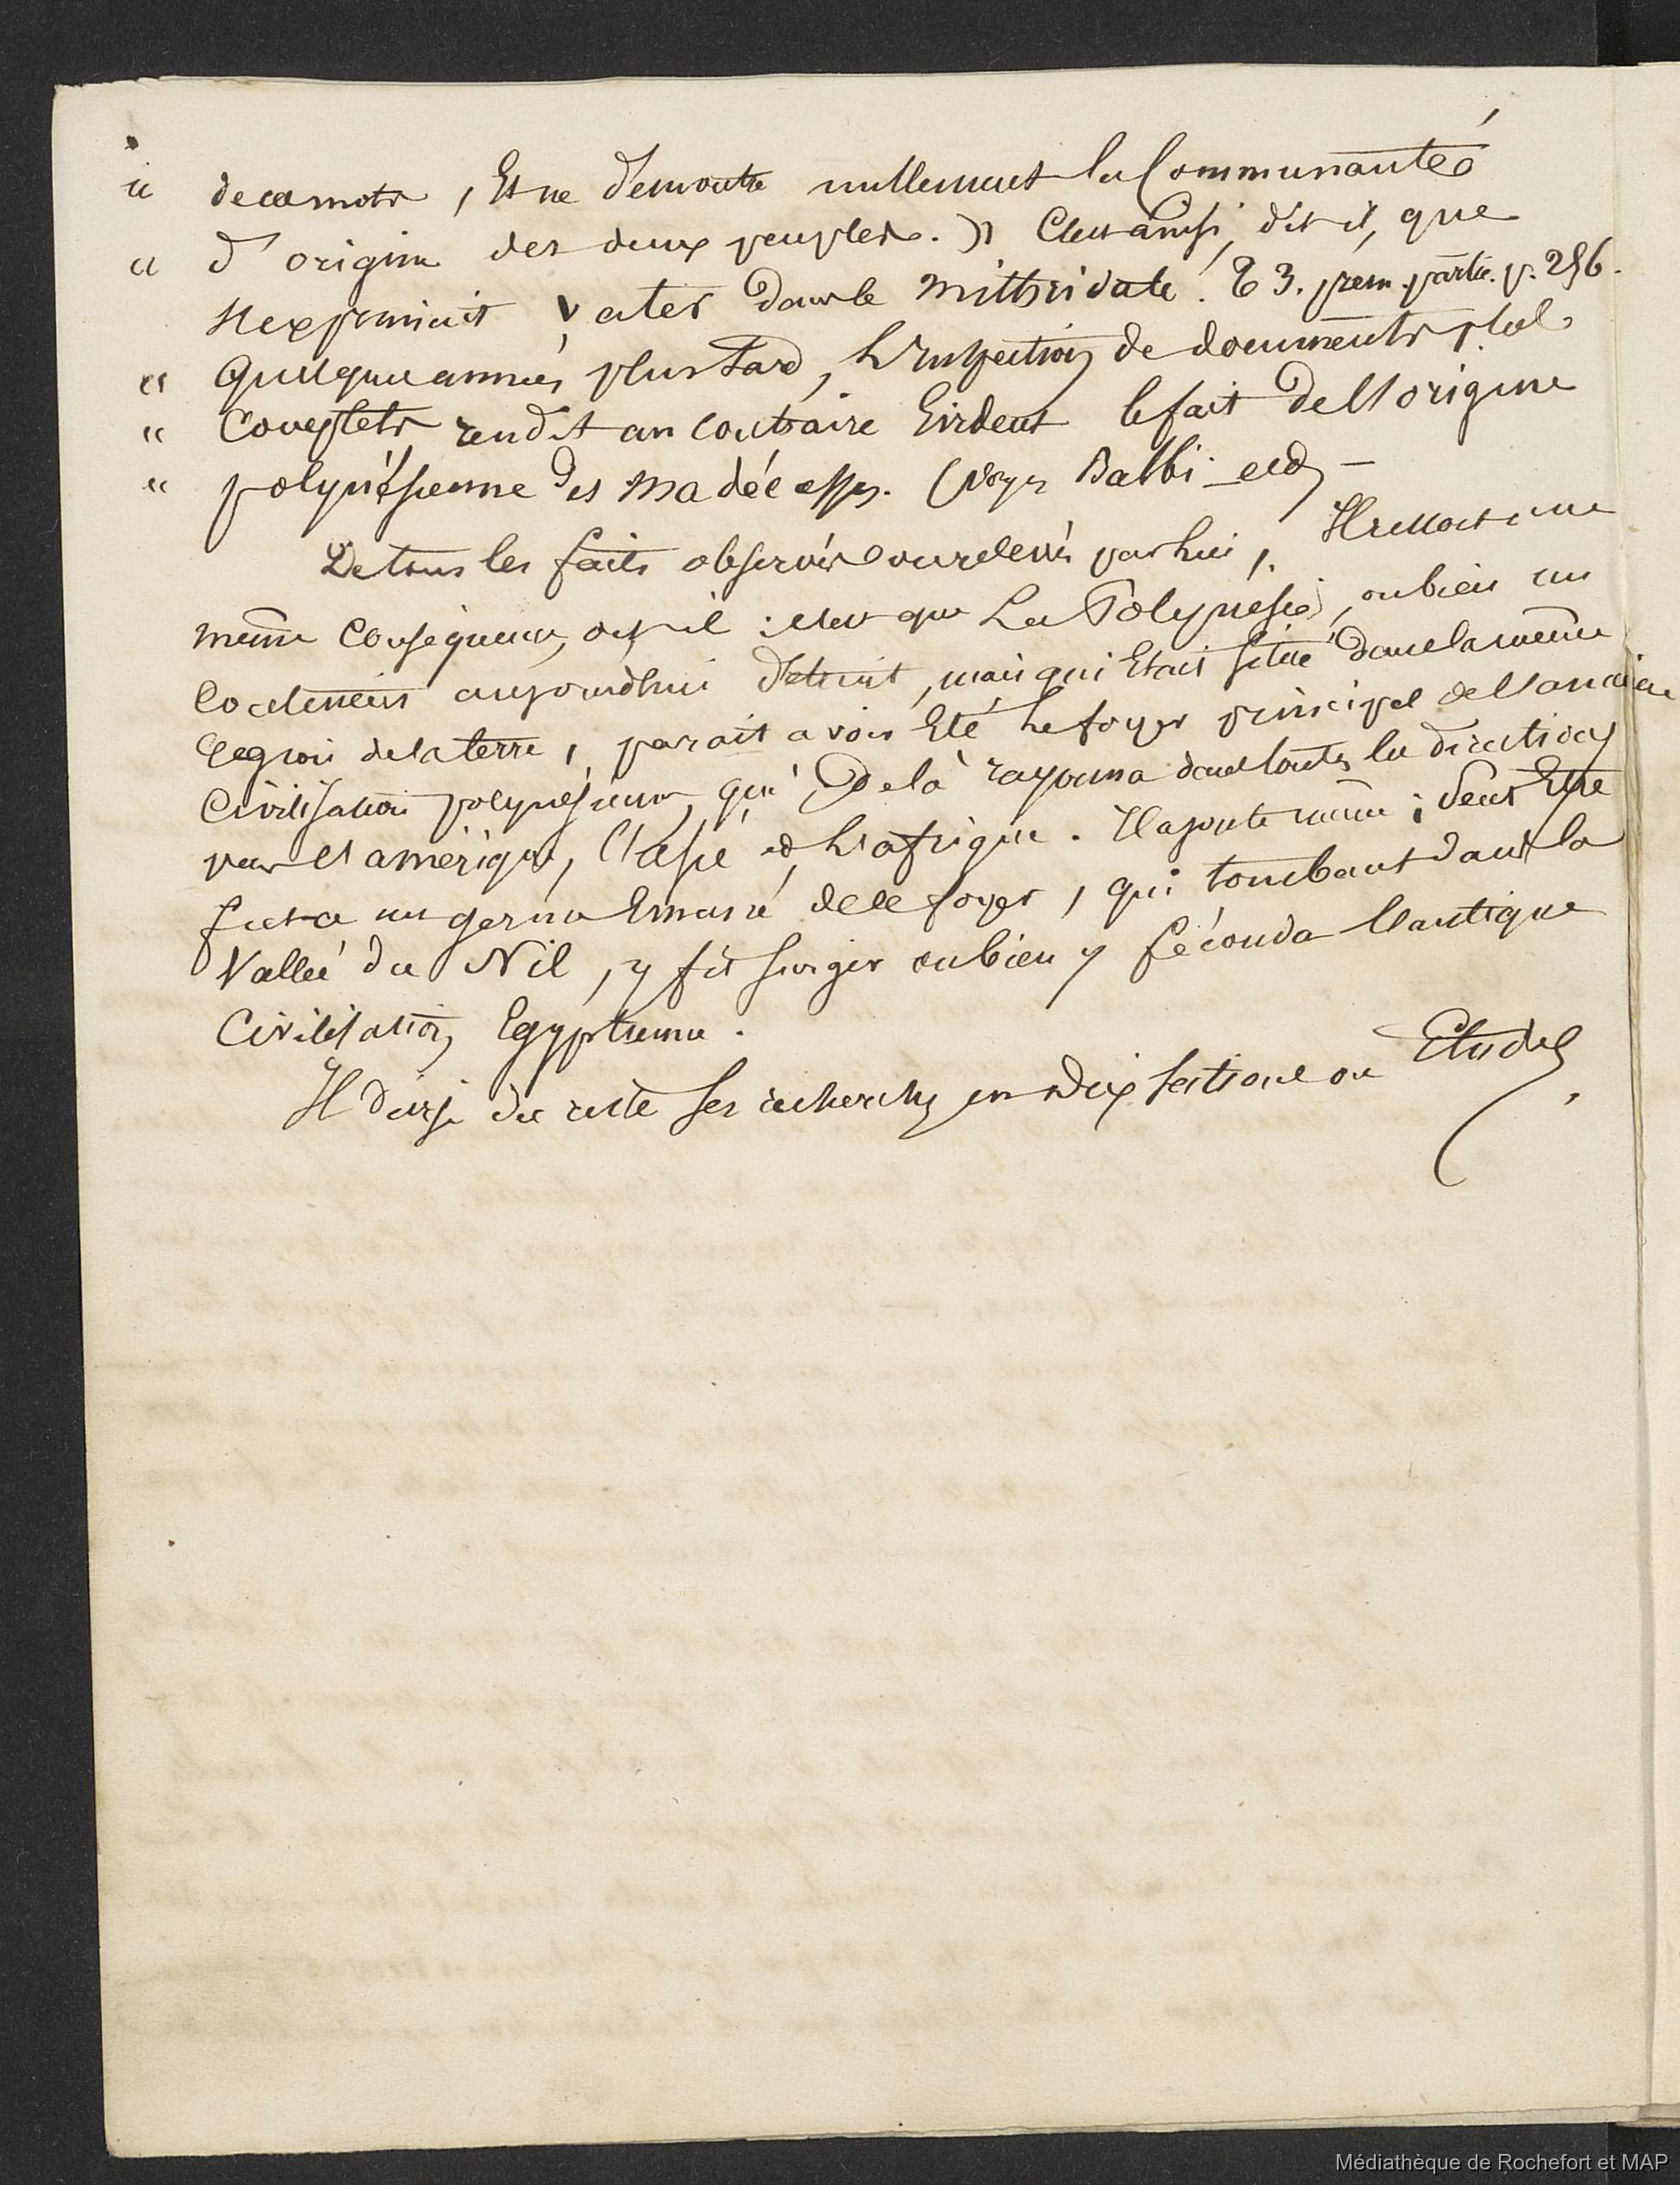 " de ces mots, Et ne démontre nullement la Communauté
" d'origine des deux peuples. » C'est ainsi, dit il, que
s'exprimait Vater dans le Mithridate. T 3. prem. partie. p. 256.
" Quelques années plus tard, L'inspection de documents plus
" Complets rendit au contraire Evident le fait de l'origine
" polynésienne des Madécasses. (voyez Balbi. ect) –
De tous les faits observés ou relevés par lui, Il ressort une
même Conséquence, dit-il : c'est que La Polynésie, ou bien un
Continent aujourd'hui détruit, mais qui Etait situé dans la même
Région de la terre, parait avoir Eté Le foyer principal de l'ancienne
Civilisation polynésienne, qui De là rayonna dans toutes les directions
vers l'amérique, l'asie et L'afrique. Il ajoute même : Peut Etre
fut-ce un germe Emané de ce foyer, qui tombant dans la
Vallée du Nil, y fit surgir ou bien y féconda l'antique
Civilisation Egyptienne.
Il divise du reste ses recherches en Dix sections ou Etudes.
Médiathèque de Rochefort et MAP